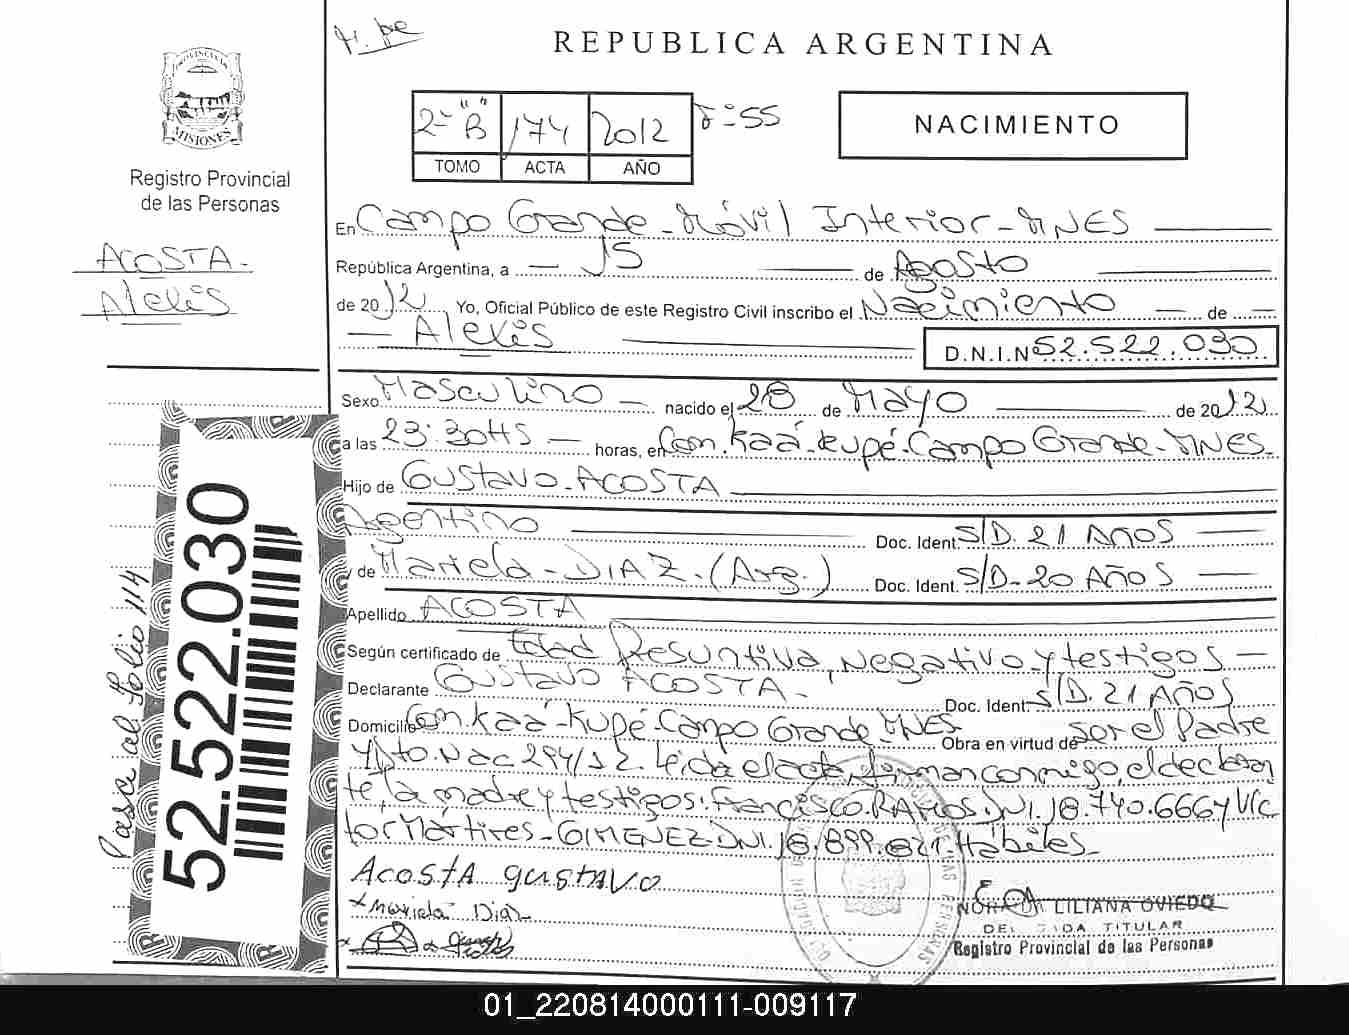 H. pe
REPUBLICA ARGENTINA
2º "B" 174 2012 Fº 55
TOMO ACTA AÑO
NACIMIENTO
MISIONES
Registro Provincial
de las Personas
ACOSTA-
Alexis
En Campo Grande-Móvil Interior-MNES
República Argentina, a 15 de Agosto
de 2012 Yo, Oficial Público de este Registro Civil inscribo el Nacimiento de
Alexis
D.N.I.N 52.522.030
Sexo Masculino nacido el 28 de Mayo de 2012
a las 23:30HS horas, en Com.Kaá-Kupé-Campo Grande-MNES
Hijo de Gustavo-ACOSTA
Argentino Doc. Ident. S/D. 21 Años
y de Mariela-DIAZ.(Arg.) Doc. Ident. S/D-20 Años
Apellido ACOSTA
Según certificado de Edad Presuntiva, Negativo y testigos
Declarante Gustavo ACOSTA- Doc. Ident. S/D. 21 Años
Domicilio Com.Kaá-Kupé-Campo Grande MNES Obra en virtud de ser el Padre
Nac 294/12. Leída el acta, firman conmigo, el declaran
te, la madre y testigos: Francisco-RAMOS-DNI.18.740.666 y Víc
tor Mártires-GIMENEZ-DNI.18.899.821-Hábiles-
Acosta gustavo
Mariela Diaz
NORA LILIANA OVIEDO
TITULAR
Registro Provincial de las Personas
52.522.030
Pasa al folio 114
01_220814000111-009117